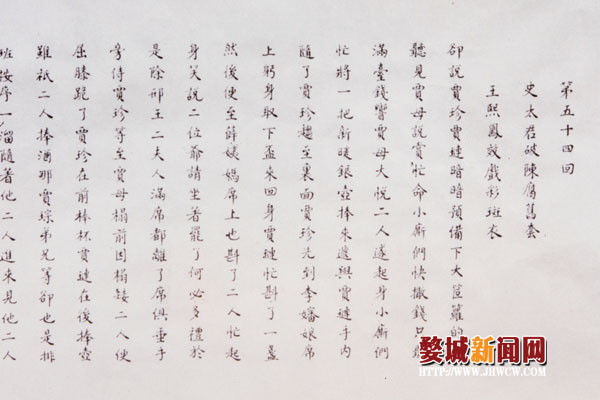 第五十四回
史太君破陳腐舊套
王熙鳳效戲彩斑衣
卻說賈珍賈璉暗暗預備下大笸籮的
聽見賈母說賞忙命小廝們快撒錢只
滿臺錢響賈母大悅二人遂起身小廝們
忙將一把新暖銀壺捧來遞與賈璉手內
隨了賈珍趨至裏面賈珍先到李嬸娘席
上躬身取下盃來回身賈璉忙斟了一盞
然後便至薛姨媽席上也斟了二人忙起
身笑說二位爺請坐著罷了何必多禮於
是除邢王二夫人滿席都離了席俱垂手
旁侍賈珍等至賈母榻前因榻矮二人便
屈膝跪了賈珍在前捧杯賈璉在後捧壺
雖祇二人捧酒那賈琮弟兄等卻也是排
班按序一溜隨著他二人進來見他二人
婺城新闻网
HTTP://WWW.JHWCW.COM